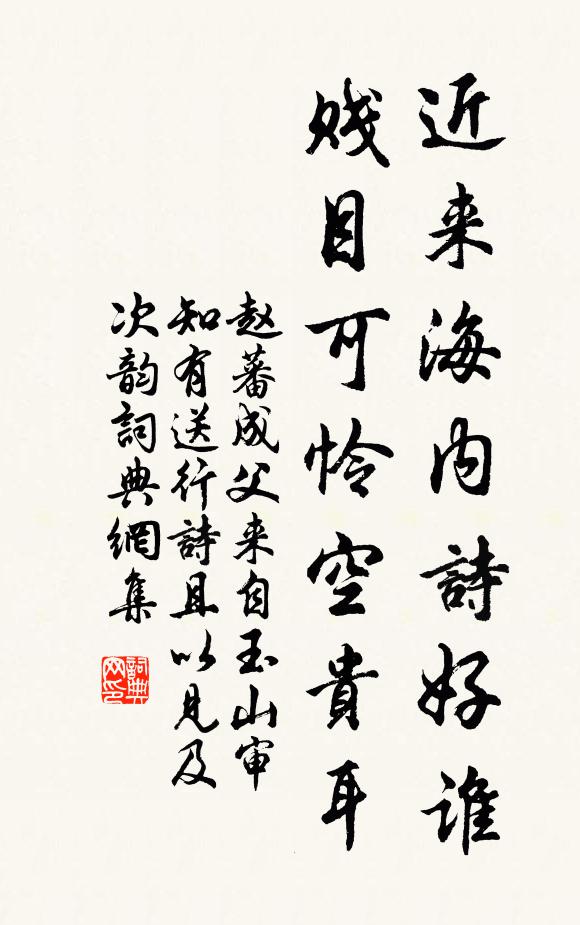 近来海内詩好誰
賎目可怜空貴耳
赵蕃成父来自玉山审
知有送行詩且以见及
次韵詞典網集
詞典网印